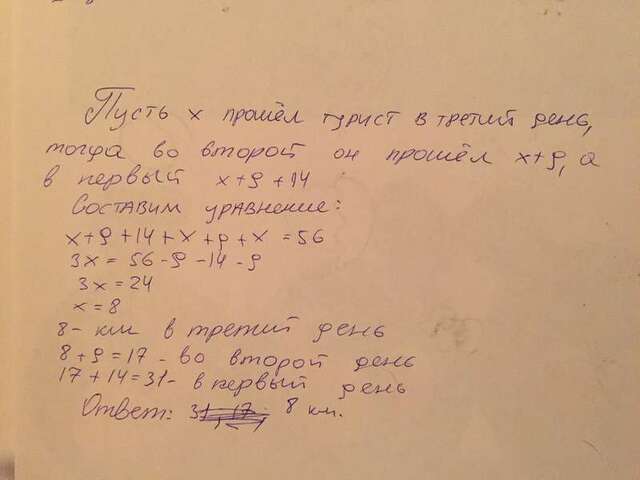 Пусть х прошёл турист в третий день,
тогда во второй он прошёл х+9, а
в первый х+9+14
Составим уравнение:
х+9+14+х+9+х=56
3х=56-9-14-9
3х=24
х=8
8-км в третий день
8+9=17-во второй день
17+14=31-в первый день
Ответ: 8 км.